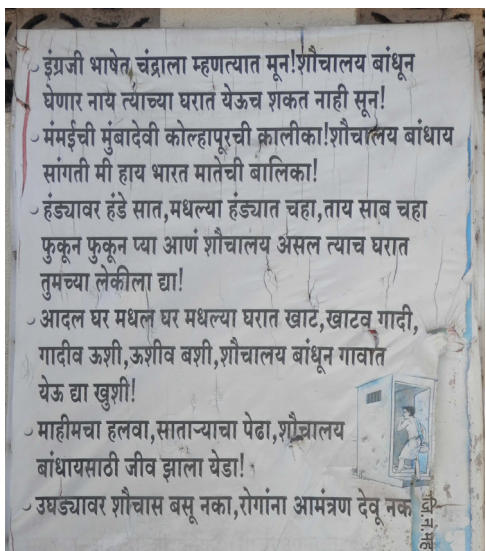 इंग्रजी भाषेत चंद्राला म्हणत्यात मून!शौचालय बांधून
घेणार नाय त्याच्या घरात येऊच शकत नाही सून!
मंमईची मुंबादेवी कोल्हापूरची कालीका!शौचालय बांधाय
सांगती मी हाय भारत मातेची बालिका!
हंड्यावर हंडे सात,मधल्या हंड्यात चहा,ताय साब चहा
फुकून फुकून प्या आणं शौचालय असल त्याच घरात
तुमच्या लेकीला द्या!
आदल घर मधल घर मधल्या घरात खाट,खाटव गादी,
गादीव ऊशी,ऊशीव बशी,शौचालय बांधून गावात
येऊ द्या खुशी!
माहीमचा हलवा,साताऱ्याचा पेढा,शौचालय
बांधायसाठी जीव झाला येडा!
उघड्यावर शौचास बसू नका,रोगांना आमंत्रण देवू नक